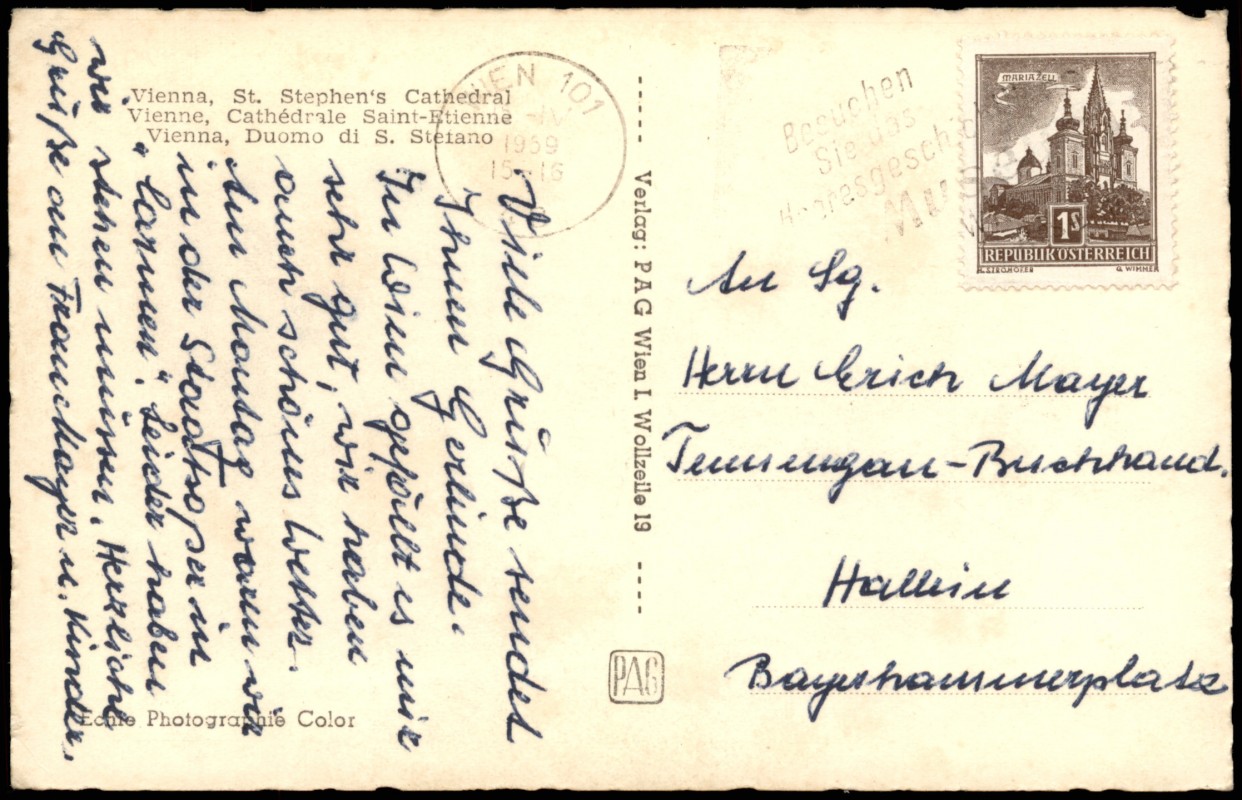 Vienna, St. Stephen's Cathedral
Vienne, Cathédrale Saint-Etienne
Vienna, Duomo di S. Stefano
WIEN 101
1959
15-16
Besuchen
Sie das
Heeresgeschich
Muse
MARIAZELL
1S
REPUBLIK ÖSTERREICH
G. WIMMER
Viele Grüße sendet
Ihnen Gerlinde.
In Wien gefällt es mir
sehr gut, wir haben
auch schönes Wetter.
Am Montag waren wir
in der Staatsoper in
"Carmen". Leider haben
wir stehen müssen. Herzliche
Grüße an Frau Mayer u. Kinder.
Verlag: PAG Wien I. Wollzeile 19
PAG
An Sg.
Herrn Erich Mayer
Tennengau-Buchhand.
Hallein
Bayerhammerplatz
Echte Photographie Color